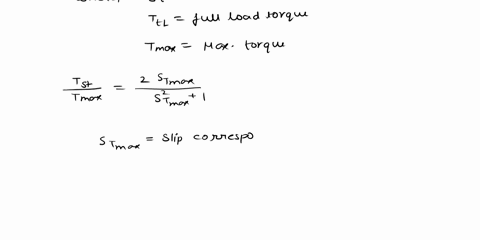 T_fL = full load torque
T_max = Max. torque
T_st / T_max = 2 S_Tmax / S²_Tmax + 1
S_Tmax = Slip correspo